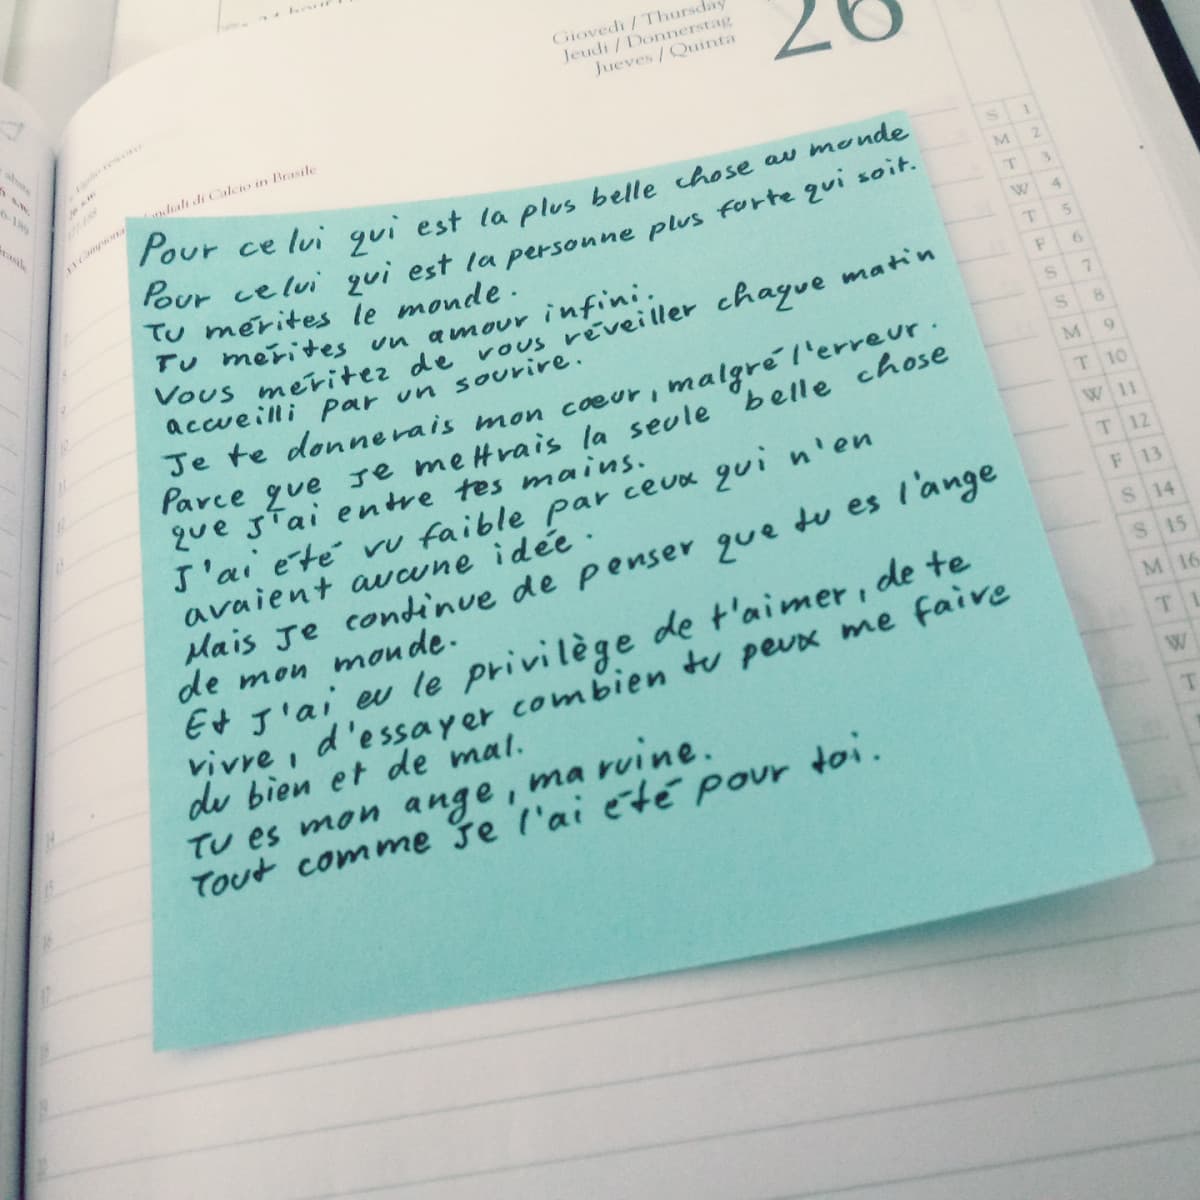 Giovedì / Thursday
Jeudi / Donnerstag
Jueves / Quinta
26
ndiali di Calcio in Brasile
XX Campiona
Pour celui qui est la plus belle chose au monde
Pour celui qui est la personne plus forte qui soit.
Tu mérites le monde.
Tu mérites un amour infini.
Vous méritez de vous réveiller chaque matin
accueilli par un sourire.
Je te donnerais mon cœur, malgré l'erreur.
Parce que je mettrais la seule belle chose
que j'ai entre tes mains.
J'ai été vu faible par ceux qui n'en
avaient aucune idée.
Mais je continue de penser que tu es l'ange
de mon monde.
Et j'ai eu le privilège de t'aimer, de te
vivre, d'essayer combien tu peux me faire
du bien et de mal.
Tu es mon ange, ma ruine.
Tout comme je l'ai été pour toi.
S 1
M 2
T 3
W 4
T 5
F 6
S 7
S 8
M 9
T 10
W 11
T 12
F 13
S 14
S 15
M 16
T 1
W
T